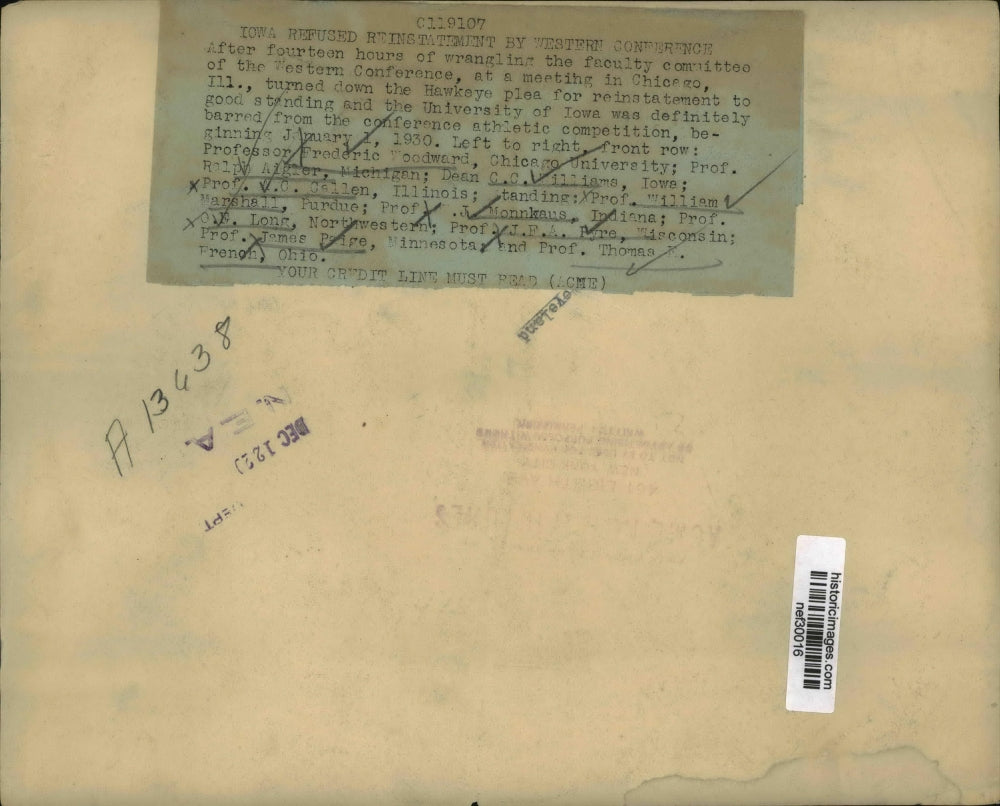 C119107
IOWA REFUSED REINSTATEMENT BY WESTERN CONFERENCE
After fourteen hours of wrangling the faculty committee
of the Western Conference, at a meeting in Chicago,
Ill., turned down the Hawkeye plea for reinstatement to
good standing and the University of Iowa was definitely
barred from the conference athletic competition, be-
ginning January 1, 1930. Left to right, front row:
Professor Frederic Woodward, Chicago University; Prof.
Ralph Aigler, Michigan; Dean C.C. Williams, Iowa;
Prof. Callen, Illinois; standing; Prof. William
Marshall, Purdue; Prof. .J. Indiana; Prof.
O.F. Long, Northwestern; Prof. J.F.A. Pyre, Wisconsin;
Prof. James Paige, Minnesota, and Prof. Thomas E.
French, Ohio.
YOUR CREDIT LINE MUST READ (ACME)
Cleveland
A 13638
N.E.A.
DEC 12
DEPT
WRITTEN PERMISSION
NEW YORK CITY
historicimages.com
nef30016